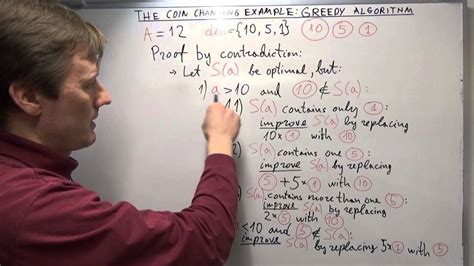 THE COIN CHANGING EXAMPLE: GREEDY ALGORITHM
A = 12 den = {10, 5, 1} 10 5 1
Proof by contradiction:
→ Let S(a) be optimal, but:
1) a > 10 and 10 ∉ S(a):
1.1) S(a) contains only 1:
improve S(a) by replacing
10× 1 with 10
2) S(a) contains one 5:
5 + 5× 1 with 10
) S(a) contains more than one 5:
improve S(a) by replacing
2× 5 with 10
<10 and 5 ∉ S(a):
improve S(a) by replacing 5× 1 with 5